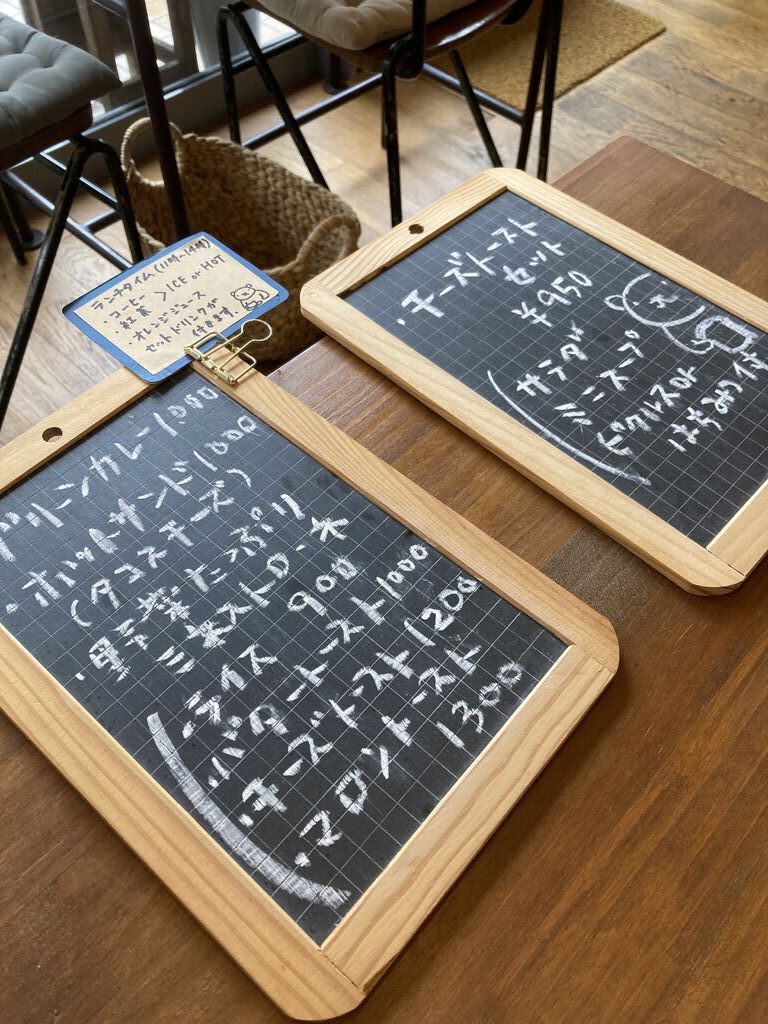 ランチタイム(11時~14時)
・コーヒー
紅茶 > ICE or HOT
・オレンジジュース
セットドリンクが
付きます。
ドリンカレー
・ホットサンド1000
(タコスチーズ)
・野菜たっぷり
ミネストローネ
(ライス 900
・バタートースト1000
・チーズトースト1200
・マロントースト
1300
・チーズトースト
セット
¥950
(サラダ
ミニスープ
ピクルスor
はちみつ付